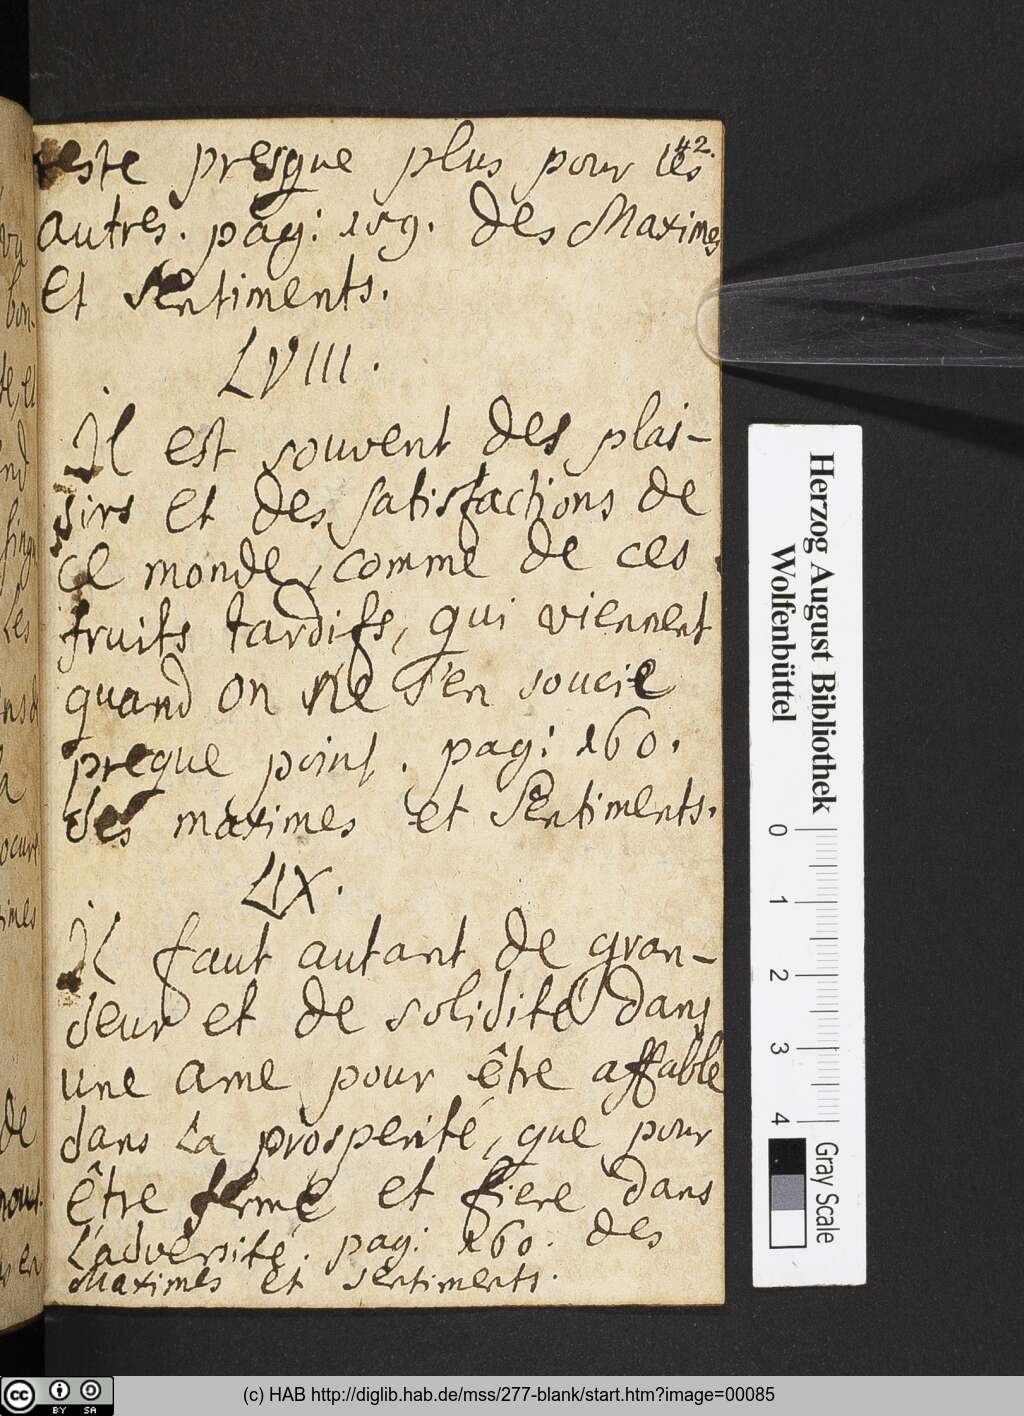 42.
reste presque plus pour les
autres. pag: 159. des Maximes
et Sentiments.
LVIII.
Il est souvent des plai-
sirs et des satisfactions de
ce monde, comme de ces
fruits tardifs, qui viennent
quand on ne s'en soucie
preque point. pag: 160.
des maximes et Sentiments.
LIX.
Il faut autant de gran-
deur et de solidité dans
une ame pour être affable
dans la prosperité, que pour
être ferme et fiere dans
l'adversité. pag: 160. des
Maximes et sentiments.
Herzog August Bibliothek
Wolfenbüttel
0 1 2 3 4
Gray Scale
(c) HAB http://diglib.hab.de/mss/277-blank/start.htm?image=00085
cc BY SA